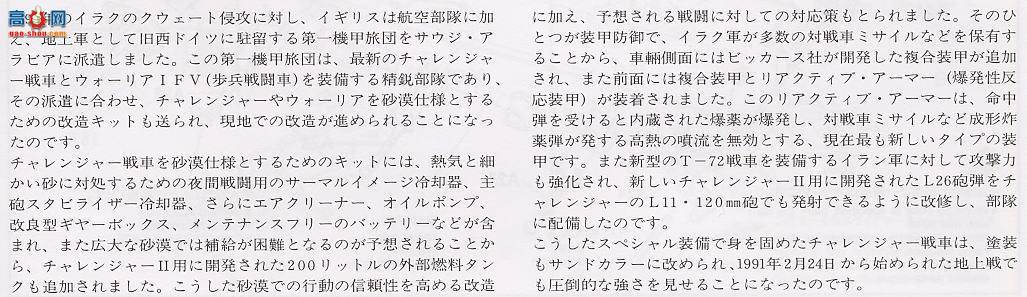 高
gao-shou.com
のイラクのクウェート侵攻に対し、イギリスは航空部隊に加
え、地上軍として旧西ドイツに駐留する第一機甲旅団をサウジ・ア
ラビアに派遣しました。この第一機甲旅団は、最新のチャレンジャ
ー戦車とウォーリアＩＦＶ(歩兵戦闘車)を装備する精鋭部隊であり、
その派遣に合わせ、チャレンジャーやウォーリアを砂漠仕様とする
ための改造キットも送られ、現地での改造が進められることになっ
たのです。
チャレンジャー戦車を砂漠仕様とするためのキットには、熱気と細
かい砂に対処するための夜間戦闘用のサーマルイメージ冷却器、主
砲スタビライザー冷却器、さらにエアクリーナー、オイルポンプ、
改良型ギヤーボックス、メンテナンスフリーのバッテリーなどが含
まれ、また広大な砂漠では補給が困難となるのが予想されることか
ら、チャレンジャーⅡ用に開発された200リットルの外部燃料タン
クも追加されました。こうした砂漠での行動の信頼性を高める改造
に加え、予想される戦闘に対しての対応策もとられました。そのひ
とつが装甲防御で、イラク軍が多数の対戦車ミサイルなどを保有す
ることから、車輛側面にはビッカース社が開発した複合装甲が追加
され、また前面には複合装甲とリアクティブ・アーマー（爆発性反
応装甲）が装着されました。このリアクティブ・アーマーは、命中
弾を受けると内蔵された爆薬が爆発し、対戦車ミサイルなど成形炸
薬弾が発する高熱の噴流を無効とする、現在最も新しいタイプの装
甲です。また新型のＴ−72戦車を装備するイラン軍に対して攻撃力
も強化され、新しいチャレンジャーⅡ用に開発されたＬ26砲弾をチ
ャレンジャーのＬ11・120㎜砲でも発射できるように改修し、部隊
に配備したのです。
こうしたスペシャル装備で身を固めたチャレンジャー戦車は、塗装
もサンドカラーに改められ、1991年2月24日から始められた地上戦で
も圧倒的な強さを見せることになったのです。